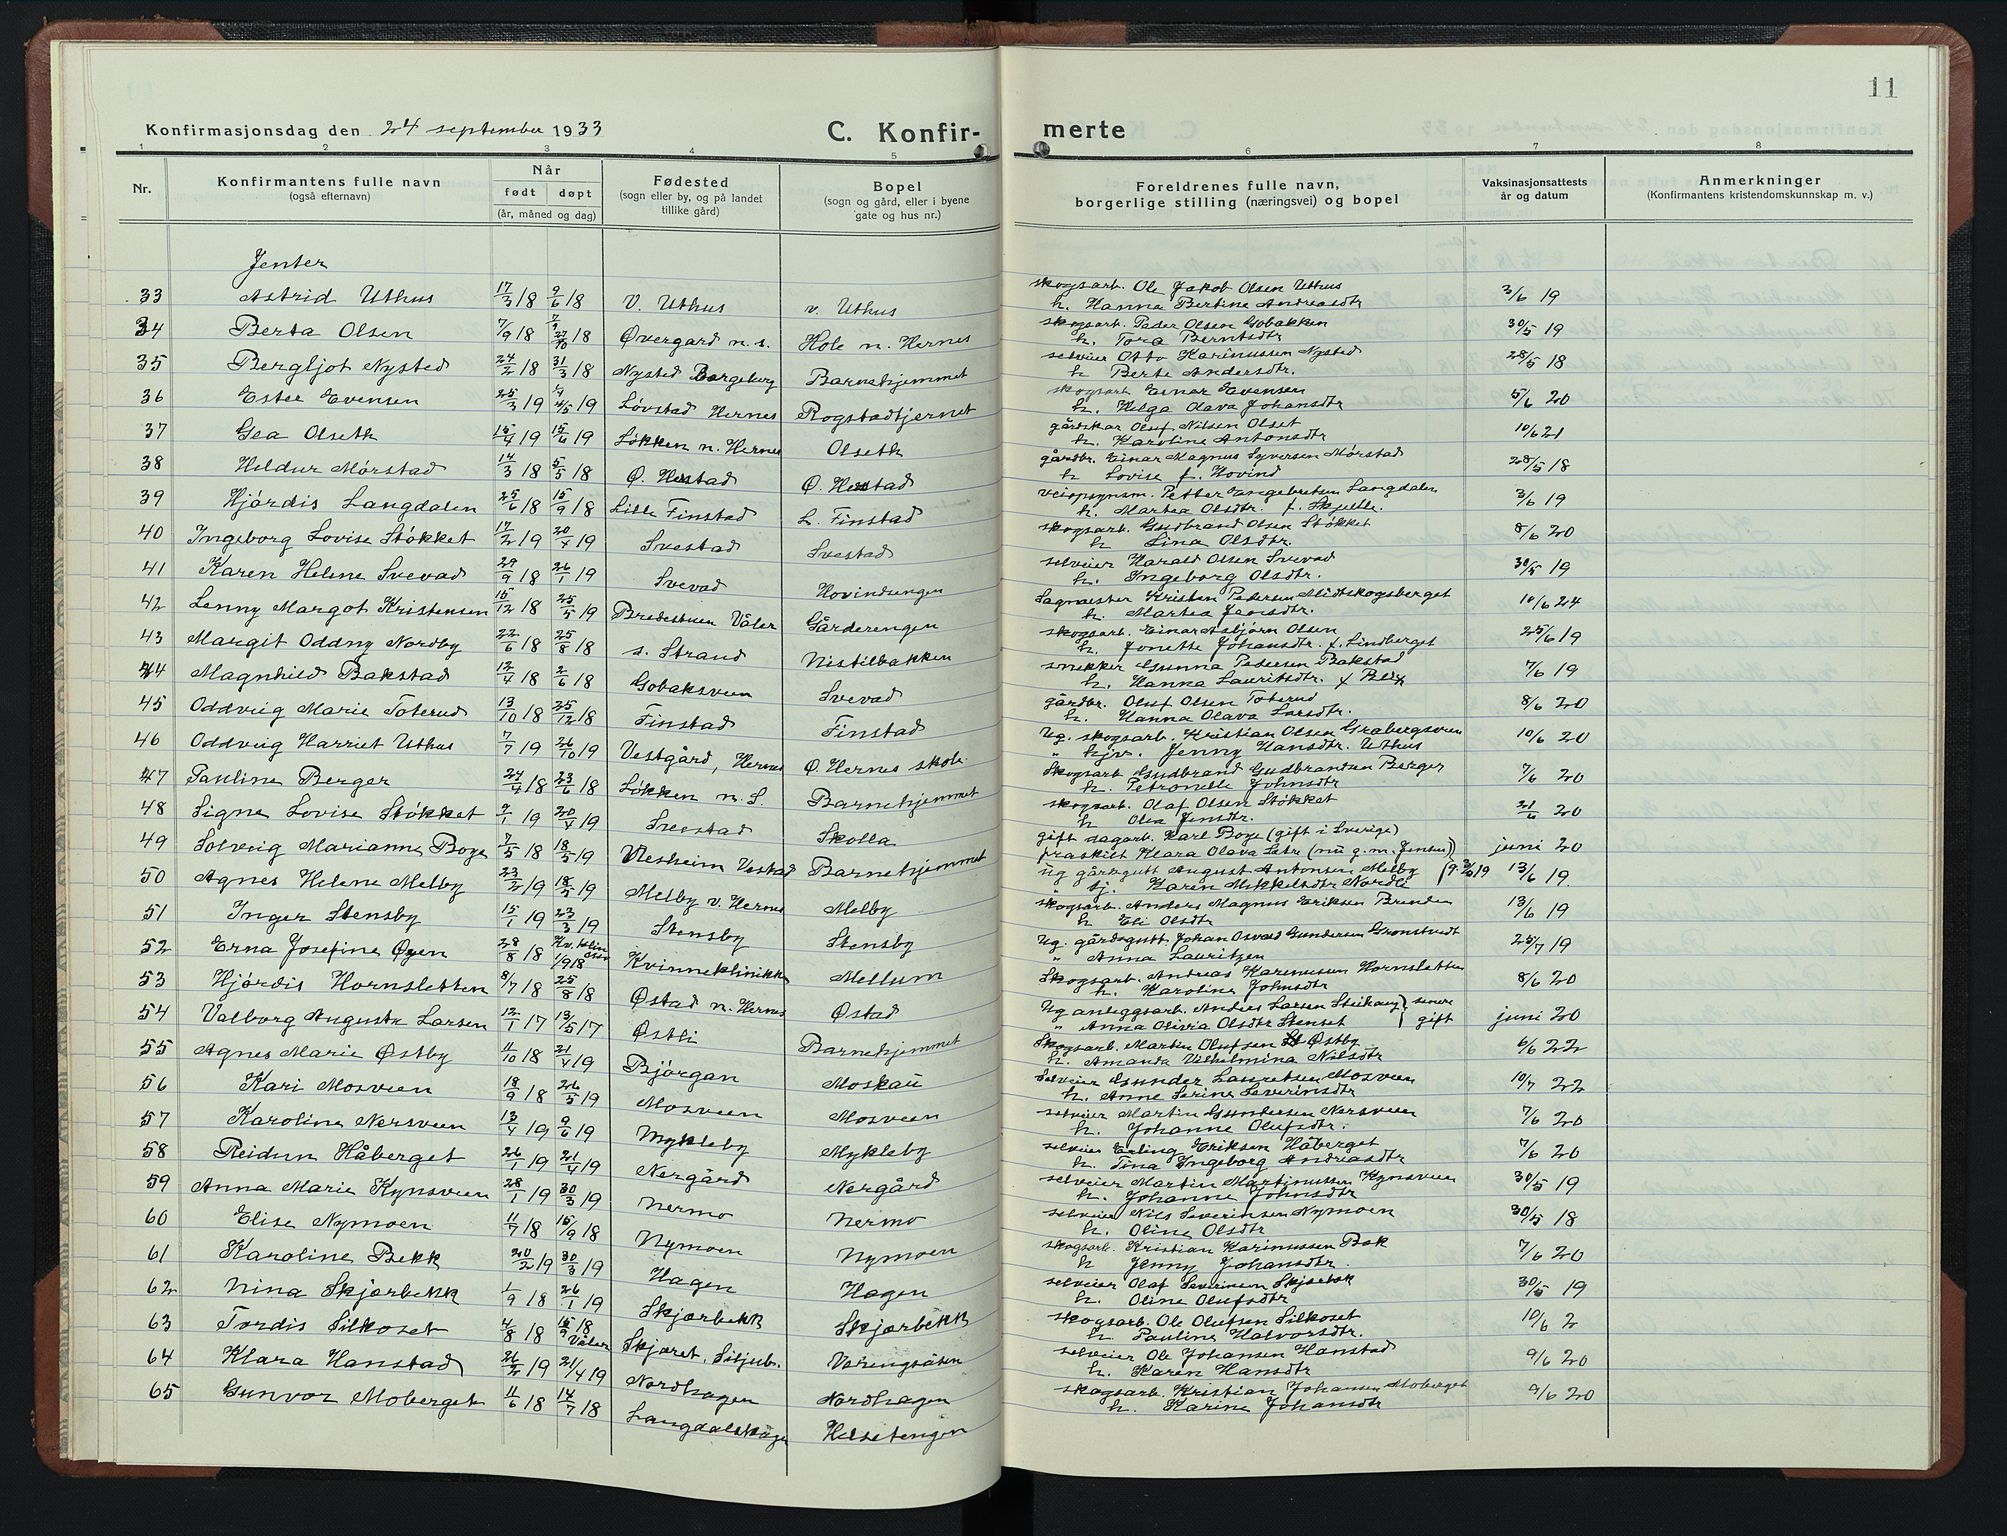 11
Konfirmasjonsdag den 24 september 1933
C. Konfir- merte
1 2 3 4 5 6 7 8
Nr.
Konfirmantens fulle navn
(også efternavn)
Når
født døpt
(år, måned og dag)
Fødested
(sogn eller by, og på landet
tillike gård)
Bopel
(sogn og gård, eller i byene
gate og hus nr.)
Foreldrenes fulle navn,
borgerlige stilling (næringsvei) og bopel
Vaksinasjonsattests
år og datum
Anmerkninger
(Konfirmantens kristendomskunnskap m. v.)
Jenter
33 Astrid Uthus 17/3 18 9/6 18 V. Uthus v. Uthus skogsarb. Ole Jakob Olsen Uthus 3/6 19
h. Hanna Bertine Andreasdtr
34 Berta Olsen 7/9 18 27/10 18 Øvergard n. s. Hole n. Hernes skogsarb. Peder Olsen Gobakken 30/5 19
h. Tora Berntsdtr.
35 Bergljot Nysted 24/2 18 31/3 18 Nysted Borgeberg Barnehjemmet selveier Otto Karinussen Nysted 28/5 18
h Berte Andersdtr.
36 Ester Evensen 25/3 19 4/5 19 Løvstad Hernes Rogstadtjernet skogsarb Einar Evensen 5/6 20
h. Helga Olava Johansdtr
37 Gea Olseth 15/4 19 15/6 19 Løkken n. Hernes Olseth gårdskar Oluf Nilsen Olset 10/6 21
h. Karoline Antonsdtr
38 Heldur Mørstad 14/3 18 5/5 18 Ø. Hestad Ø. Hestad gårdbr. Einar Magnus Syversen Mørstad 28/5 18
h Lovise f. Hovind
39 Hjørdis Langdalen 25/6 18 15/9 18 Lille Finstad L. Finstad veiopsynsm. Petter Engebretsen Langdalen 3/6 19
h. Martea Olsdtr. f. Skjelle
40 Ingeborg Lovise Støkket 17/2 19 20/4 19 Svestad Svestad skogsarb. Gudbrand Olsen Støkket 8/6 20
h Lina Olsdtr.
41 Karen Helene Svevad 29/9 18 26/1 19 Svevad Hovindsengen selveier Harald Olsen Svevad 30/5 19
h. Ingeborg Olsdtr.
42 Lenny Margot Kristensen 15/12 18 25/5 19 Bredestuen Våler Gårderengen Sagmester Kristen Pedersen Midtskogsberget 10/6 24
h. Martea Jensdtr.
43 Margit Oddny Nordby 22/6 18 25/8 18 s. Strand Nistilbakken skogsarb. Einar Asbjørn Olsen 25/6 19
h. Jonette Johansdtr. f. Lindberget
44 Magnhild Bakstad 12/4 18 2/6 18 Gobaksveen Svevad snekker Gunna Pedersen Bakstad 7/6 19
h. Hanna Lauritsdtr.
45 Oddveig Marie Toterud 13/10 18 25/12 18 Finstad Finstad gårdbr. Oluf Olsen Toterud 8/6 20
h. Hanna Olava Larsdtr.
46 Oddveig Harriet Uthus 7/7 19 26/10 19 Vestgård, Hernes Ø. Hernes skole Ug. skogsarb. Kristian Olsen Grabergsveen 10/6 20
" hjv. Jenny Hansdtr. Uthus
47 Pauline Berger 24/4 18 23/6 18 Løkken n. S. Barnehjemmet Skogsarb Gudbrand Gudbrandsen Berger 7/6 20
h. Petronelle Johnsdtr
48 Signe Lovise Støkket 9/1 19 20/4 19 Svestad Skolla skogsarb. Olaf Olsen Støkket 21/6 20
h Olea Jensdtr.
49 Solveig Marianne Boge 7/5 18 18/5 19 Vlesheim Vestad Barnehjemmet gift dagarb. Karl Boge (gift i Sverige) juni 20
fraskilt Klara Olava (nu g. m. Jensen)
50 Agnes Helene Melby 23/2 19 18/5 19 Melby v. Hernes Melby Ug gårdsgutt August Antonsen Melby 13/6 19.
" tj. Karen Mikkelsdtr Nordli
51 Inger Stensby 15/1 19 23/3 19 Stensby Stensby skogsarb. Anders Magnus Eriksen Brenden 13/6 19
h Eli Olsdtr
52 Erna Josefine Øyen 28/8 18 Kv. klinikken 1/9 18 Kvinneklinikk Mellum Ug. gårdsgutt Johan Osvald Gundersen Grønstvedt 25/7 19
" Anna Lauritzen
53 Hjørdis Hornsletten 8/7 18 25/8 18 Østad n. Hernes Østad Skogsarb. Andreas Karenusen Hornsletten 8/6 20
h. Karoline Johnsdtr
54 Valborg Augusta Larsen 12/1 17 13/5 17 Østli Barnehjemmet Ug anleggsarb. Anders Larsen senere juni 20
" Anna Olivia Olsdtr Stenset gift
55 Agnes Marie Østby 11/10 18 21/4 19 Bjørgan Moskau Skogsarb. Martin Olufsen Østby 6/6 22
h. Amanda Vilhelmina Nilsdtr
56 Kari Mosveen 18/9 18 26/5 19 Mosveen Mosveen Selveier Gunder Lauretsen Mosveen 10/7 22
h. Anne Serine Severinsdtr.
57 Karoline Nersveen 13/4 19 9/6 19 Mykleby Mykleby selveier Martin Gundersen Nersveen 7/6 20
h. Johanne Olufsdtr.
58 Reidun Håberget 26/1 19 21/4 19 Nergård Nergård selveier Erling Eriksen Håberget 7/6 20
h. Tina Ingeborg Andreasdtr
59 Anna Marie Kynsveen 28/1 19 30/3 19 Nermo Nermo selveier Martin Martinussen Kynsveen 30/5 19
h. Johanne Johnsdtr
60 Elise Nymoen 11/7 18 15/9 18 Nymoen Nymoen selveier Nils Severinsen Nymoen 30/5 18
h. Oline Olsdtr
61 Karoline Bekk 20/2 19 30/3 19 Hagen Hagen skogsarb. Kristian Karinussen Bæk 7/6 20
h Jenny Johansdtr.
62 Nina Skjærbekk 1/9 18 26/1 19 Skjærbekk Skjærbekk selveier Olaf Severinsen Skjærbæk 30/5 19
h. Oline Olufsdtr
63 Tordis Silkoset 4/8 18 15/9 18 Våler Skjæret, Siljub. Varengsåsen skogsarb. Ole Olufsen Silkoset 10/6 2
h Pauline Halvorsdtr.
64 Klara Hanstad 26/2 19 21/4 19 Nordhagen Nordhagen selveier Ole Johansen Hanstad 9/6 20
h. Karen Hansdtr
65 Gunvor Moberget 11/6 18 14/7 18 Langdalshagen Helsetengen skogsarb. Kristian Johansen Moberget 9/6 20
h. Karine Johansdtr